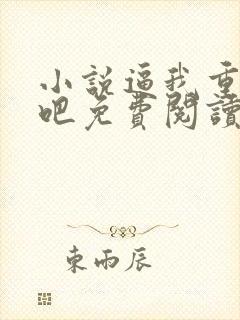 小說逼我重
吧免費閱讀
東雨辰